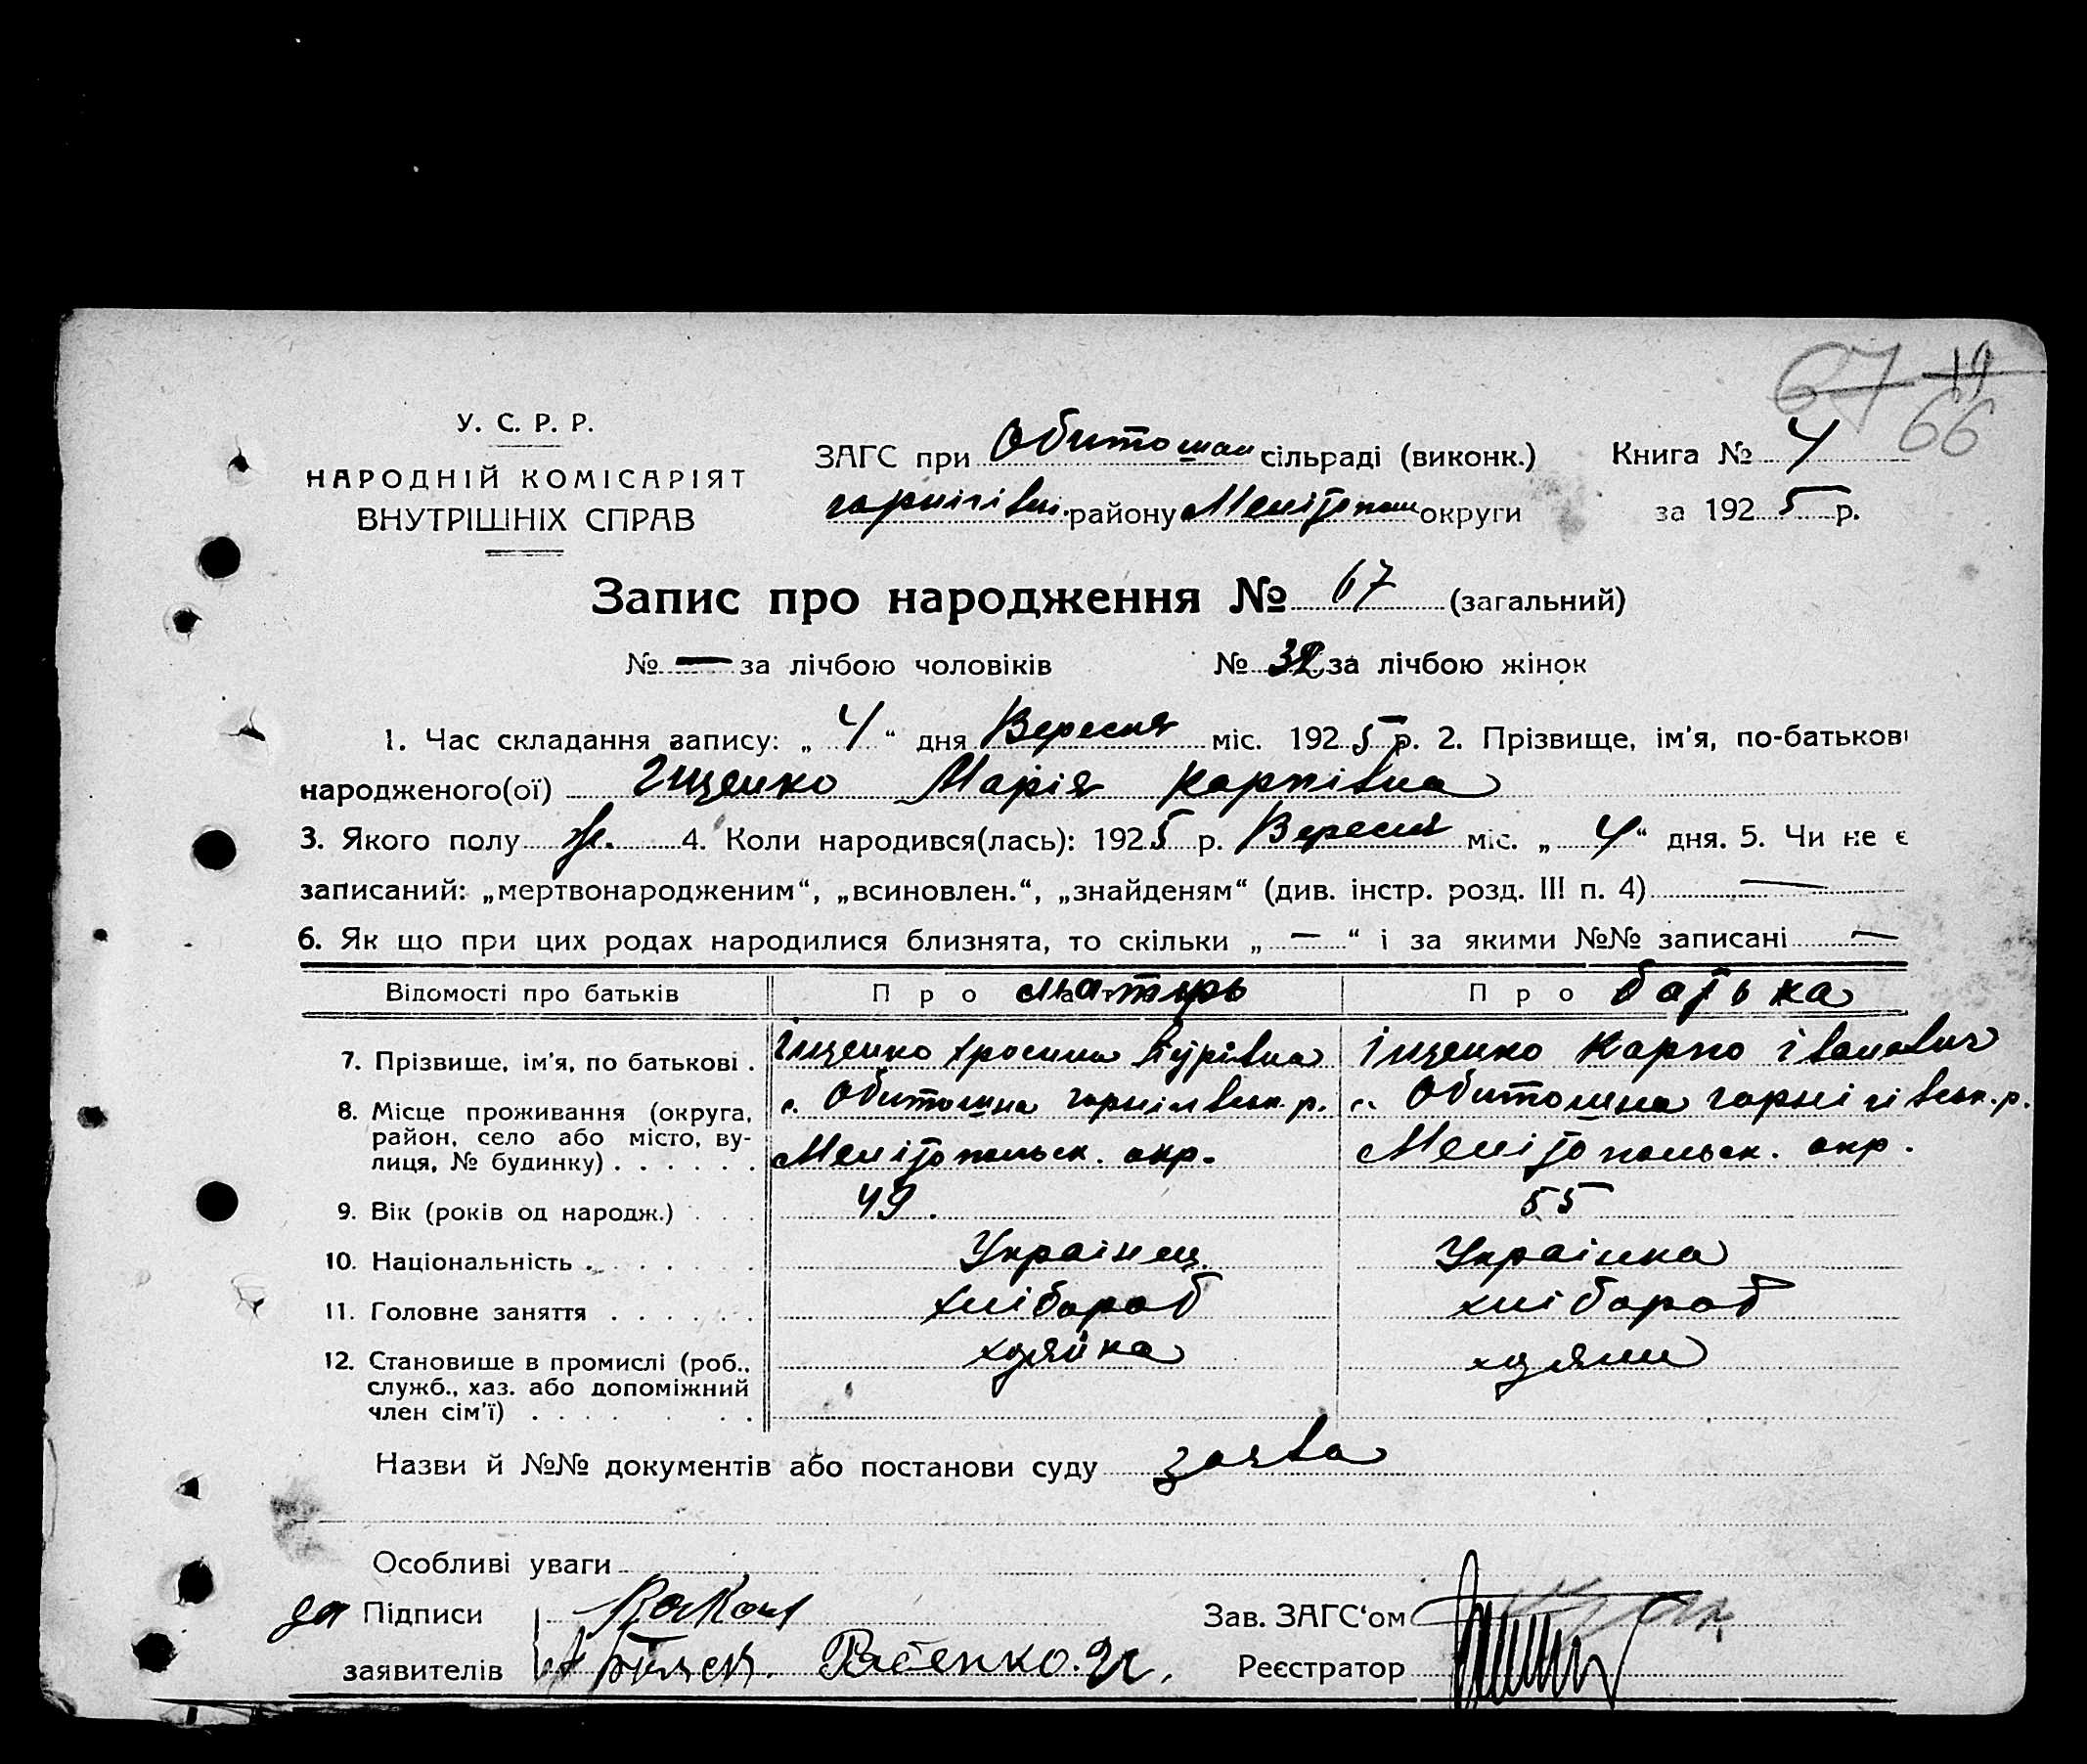 67 19
66
У. С. Р. Р.
НАРОДНІЙ КОМІСАРІЯТ
ВНУТРІШНІХ СПРАВ
ЗАГС при Обитошан сільраді (виконк.) Книга № 4
чорнігівск. району Мелітоп округи за 1925 р.
Запис про народження № 67 (загальний)
№ — за лічбою чоловіків № 32 за лічбою жінок
1. Час складання запису: „ 4 “ дня Вересня міс. 1925 р. 2. Прізвище, ім'я, по-батькові
народженого(ої) Іщенко Марія Карпівна
3. Якого полу ж. 4. Коли народився(лась): 1925 р. Вересня міс. „ 4 “ дня. 5. Чи не є
записаний: „мертвонародженим“, „всиновлен.“, „знайденям“ (див. інстр. розд. III п. 4) —
6. Як що при цих родах народилися близнята, то скільки „ — “ і за якими №№ записані —
Відомості про батьків Про матирь Про батька
7. Прізвище, ім'я, по батькові . Іщенко Іщенко Карпо Іванович
8. Місце проживання (округа, с. Обитошна р. с. Обитошна чорнігівськ. р.
район, село або місто, ву-
лиця, № будинку) . . . . . . Мелітопольск. окр. Мелітопольск. окр.
9. Вік (років од народж.) . . . 49. 55
10. Національність . . . . . . . Українец. Українка
11. Головне заняття . . . . . . хлібороб хлібороб
12. Становище в промислі (роб., хозяйка хозяин
служб., хаз. або допоміжний
член сім'ї) . . . . . . .
Назви й №№ документів або постанови суду заява
Особливі уваги
Підписи Зав. ЗАГС'ом
заявителів Реєстратор